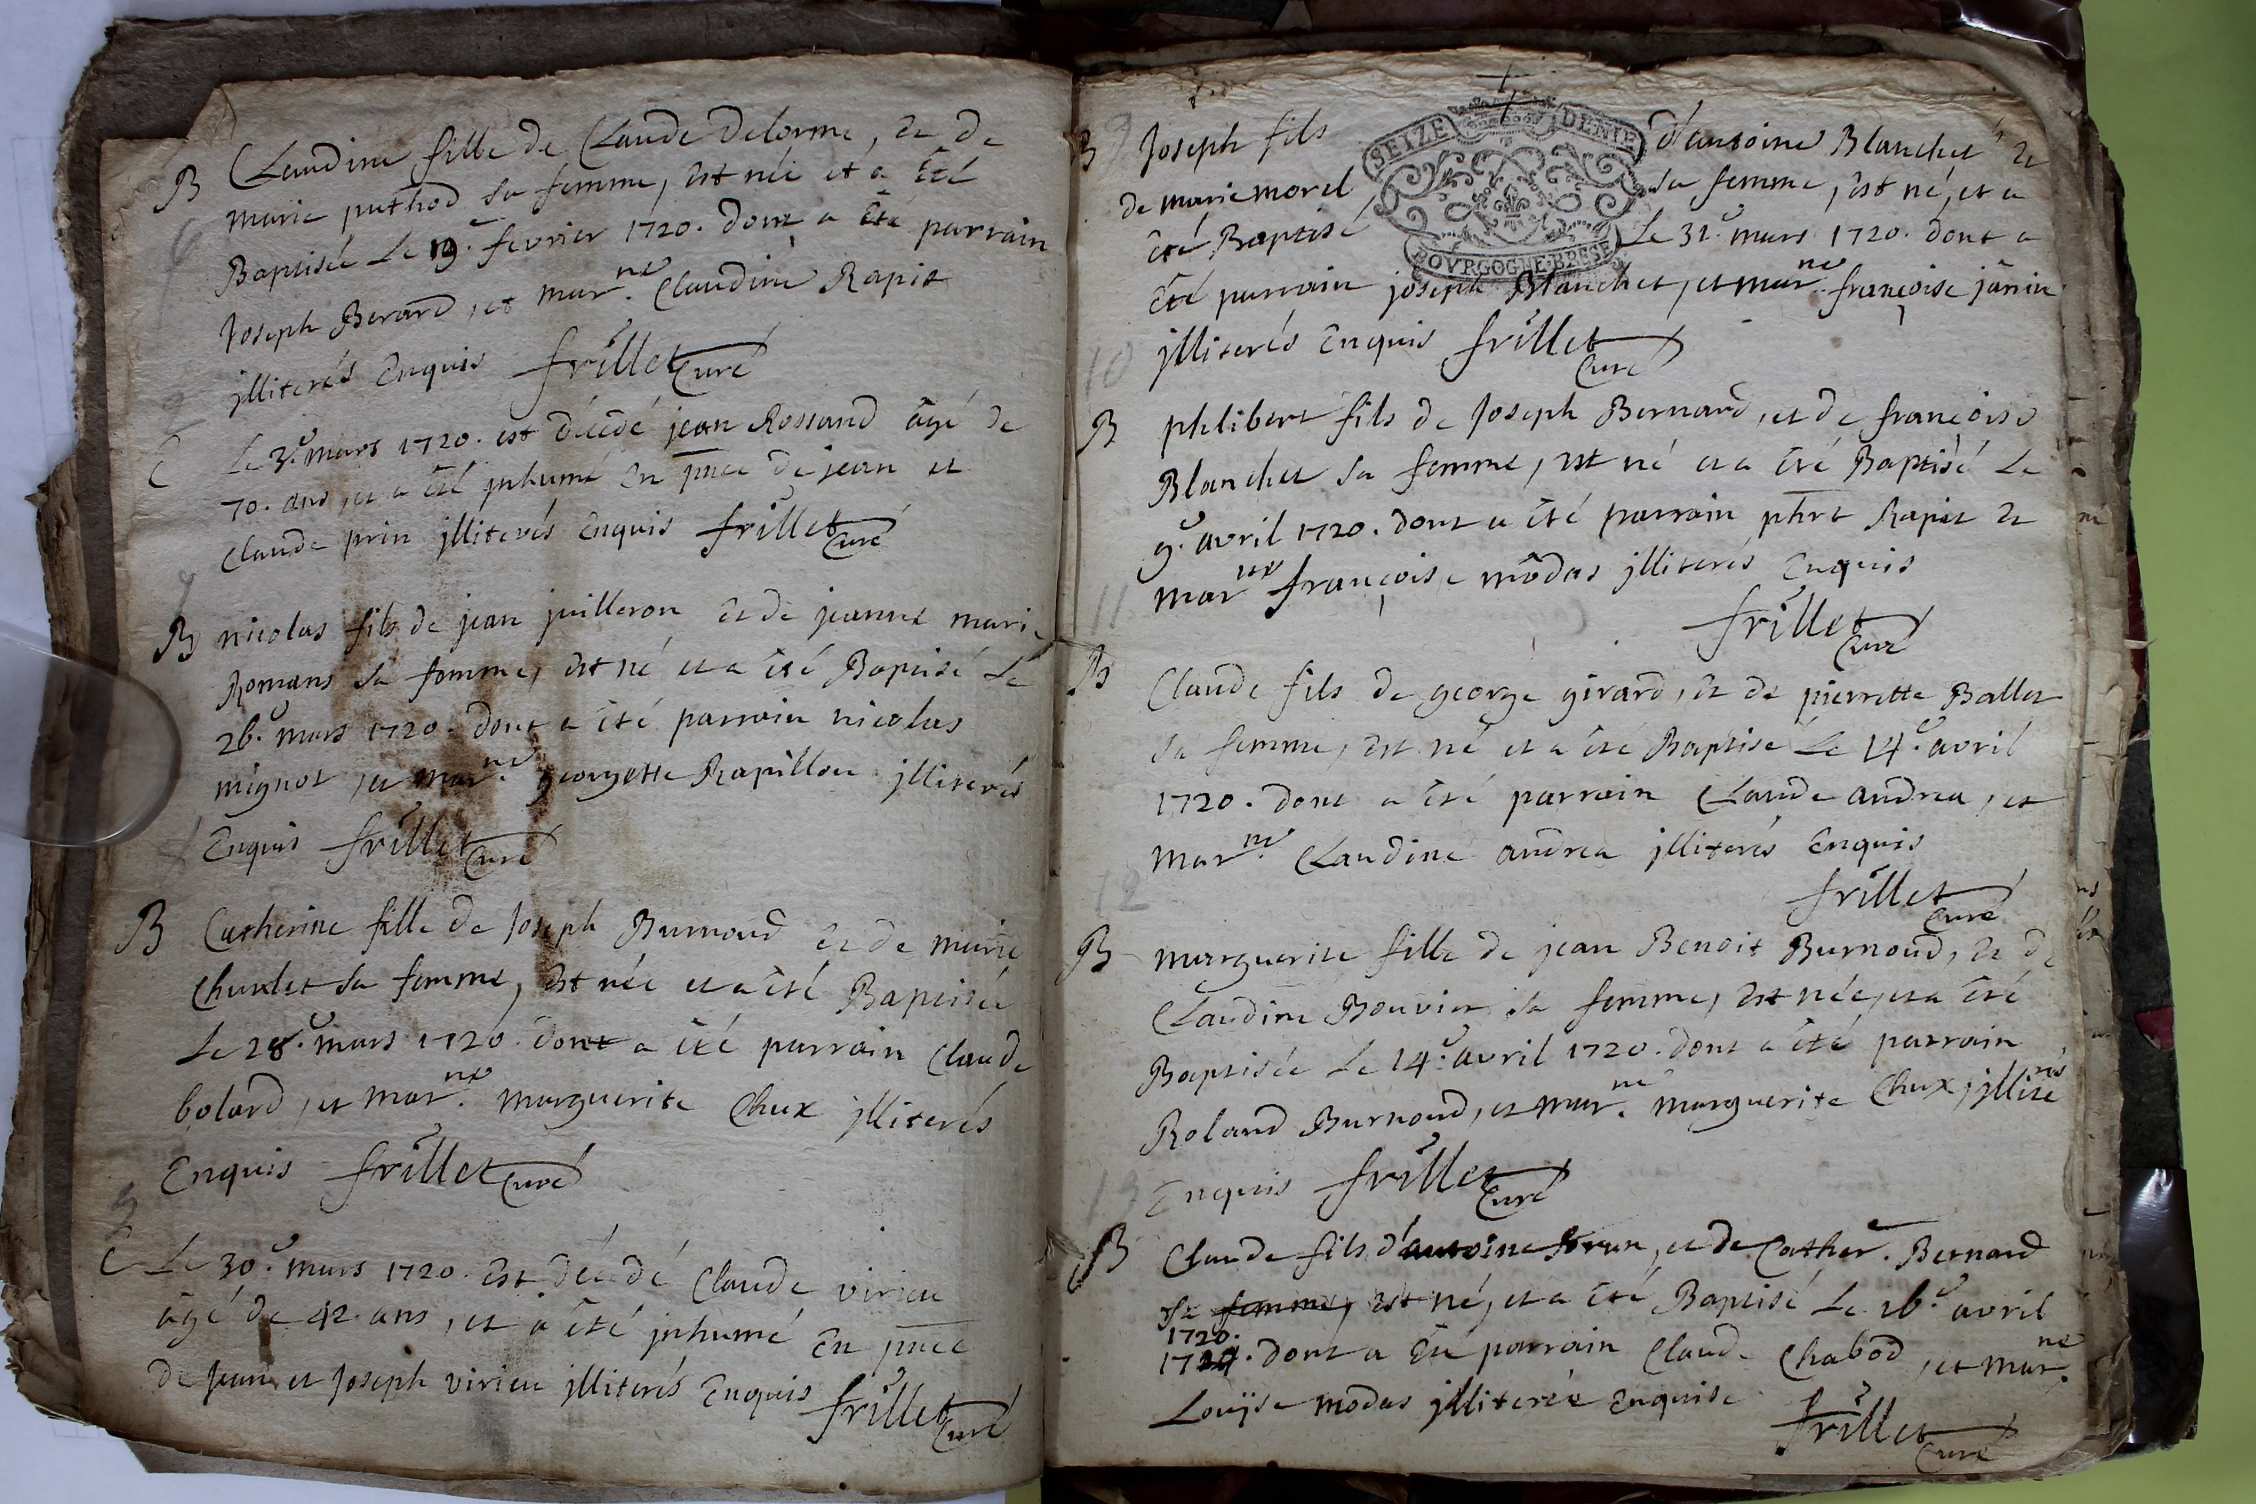 B Claudine fille de Claude Delorme, et de
marie puthod sa femme, est née et a été
Baptisée Le 19.e fevrier 1720. dont a été parrain
Joseph Berard, et mar.ne Claudine Rapit
jlliterés Enquis frillet Curé
C Le 3.e mars 1720. est décédé jean Rossand âgé de
70. ans, et a été jnhumé En pnce de jean et
Claude prin jlliterés Enquis frillet Curé
B nicolas fils de jean juilleron et de jeanne marie
Romans sa femme, est né et a été Baptisé Le
26.e mars 1720. dont a été parrain nicolas
mignot, et mar.ne georgette Rapillon jlliterés
Enquis frillet Curé
B Catherine fille de Joseph Burnoud et de marie
Chuxlet sa femme, est née et a été Baptisée
Le 28.e mars 1720. dont a été parrain Claude
bolard, et mar.ne marguerite Chux jlliterés
Enquis frillet Curé
9
C Le 30.e mars 1720. est décédé Claude virieu
âgé de 42. ans, et a été jnhumé En pnce
de Jean et Joseph virieu jlliterés Enquis frillet Curé
9
B Joseph fils d'antoine Blanchet et
SEIZE DENIE
de marie morel sa femme, est né, et a
été Baptisé Le 31.e mars 1720. dont a
BOVRGOGNE·BRESSE
été parrain joseph Blanchet, et mar.ne françoise janin
jlliterés Enquis frillet Curé
10
B phlibert fils de Joseph Bernard, et de françoise
Blanchet sa femme, est né et a été Baptisé Le
9.e avril 1720. dont a été parrain phrt Rapit et
mar.ne françoise modas jlliterés Enquis
frillet Curé
11
B Claude fils de george girard, et de pierrette Ballet
sa femme, est né et a été Baptisé Le 14.e avril
1720. dont a été parrain Claude andrea, et
mar.ne Claudine andrea jlliterés Enquis
frillet Curé
12
B marguerite fille de jean Benoit Burnoud, et de
Claudine Bouvier sa femme, est née, et a été
Baptisée Le 14.e avril 1720. dont a été parrain
Roland Burnoud, et mar.ne marguerite Chux, jlliterés
Enquis frillet Curé
13
B Claude fils d'antoine brun, et de Cather. Bernard
sa femme, est né, et a été Baptisé Le 26.e avril
1720.
dont a été parrain Claude Chabod, et mar.ne
Louÿse modas jlliterée Enquise
frillet Curé